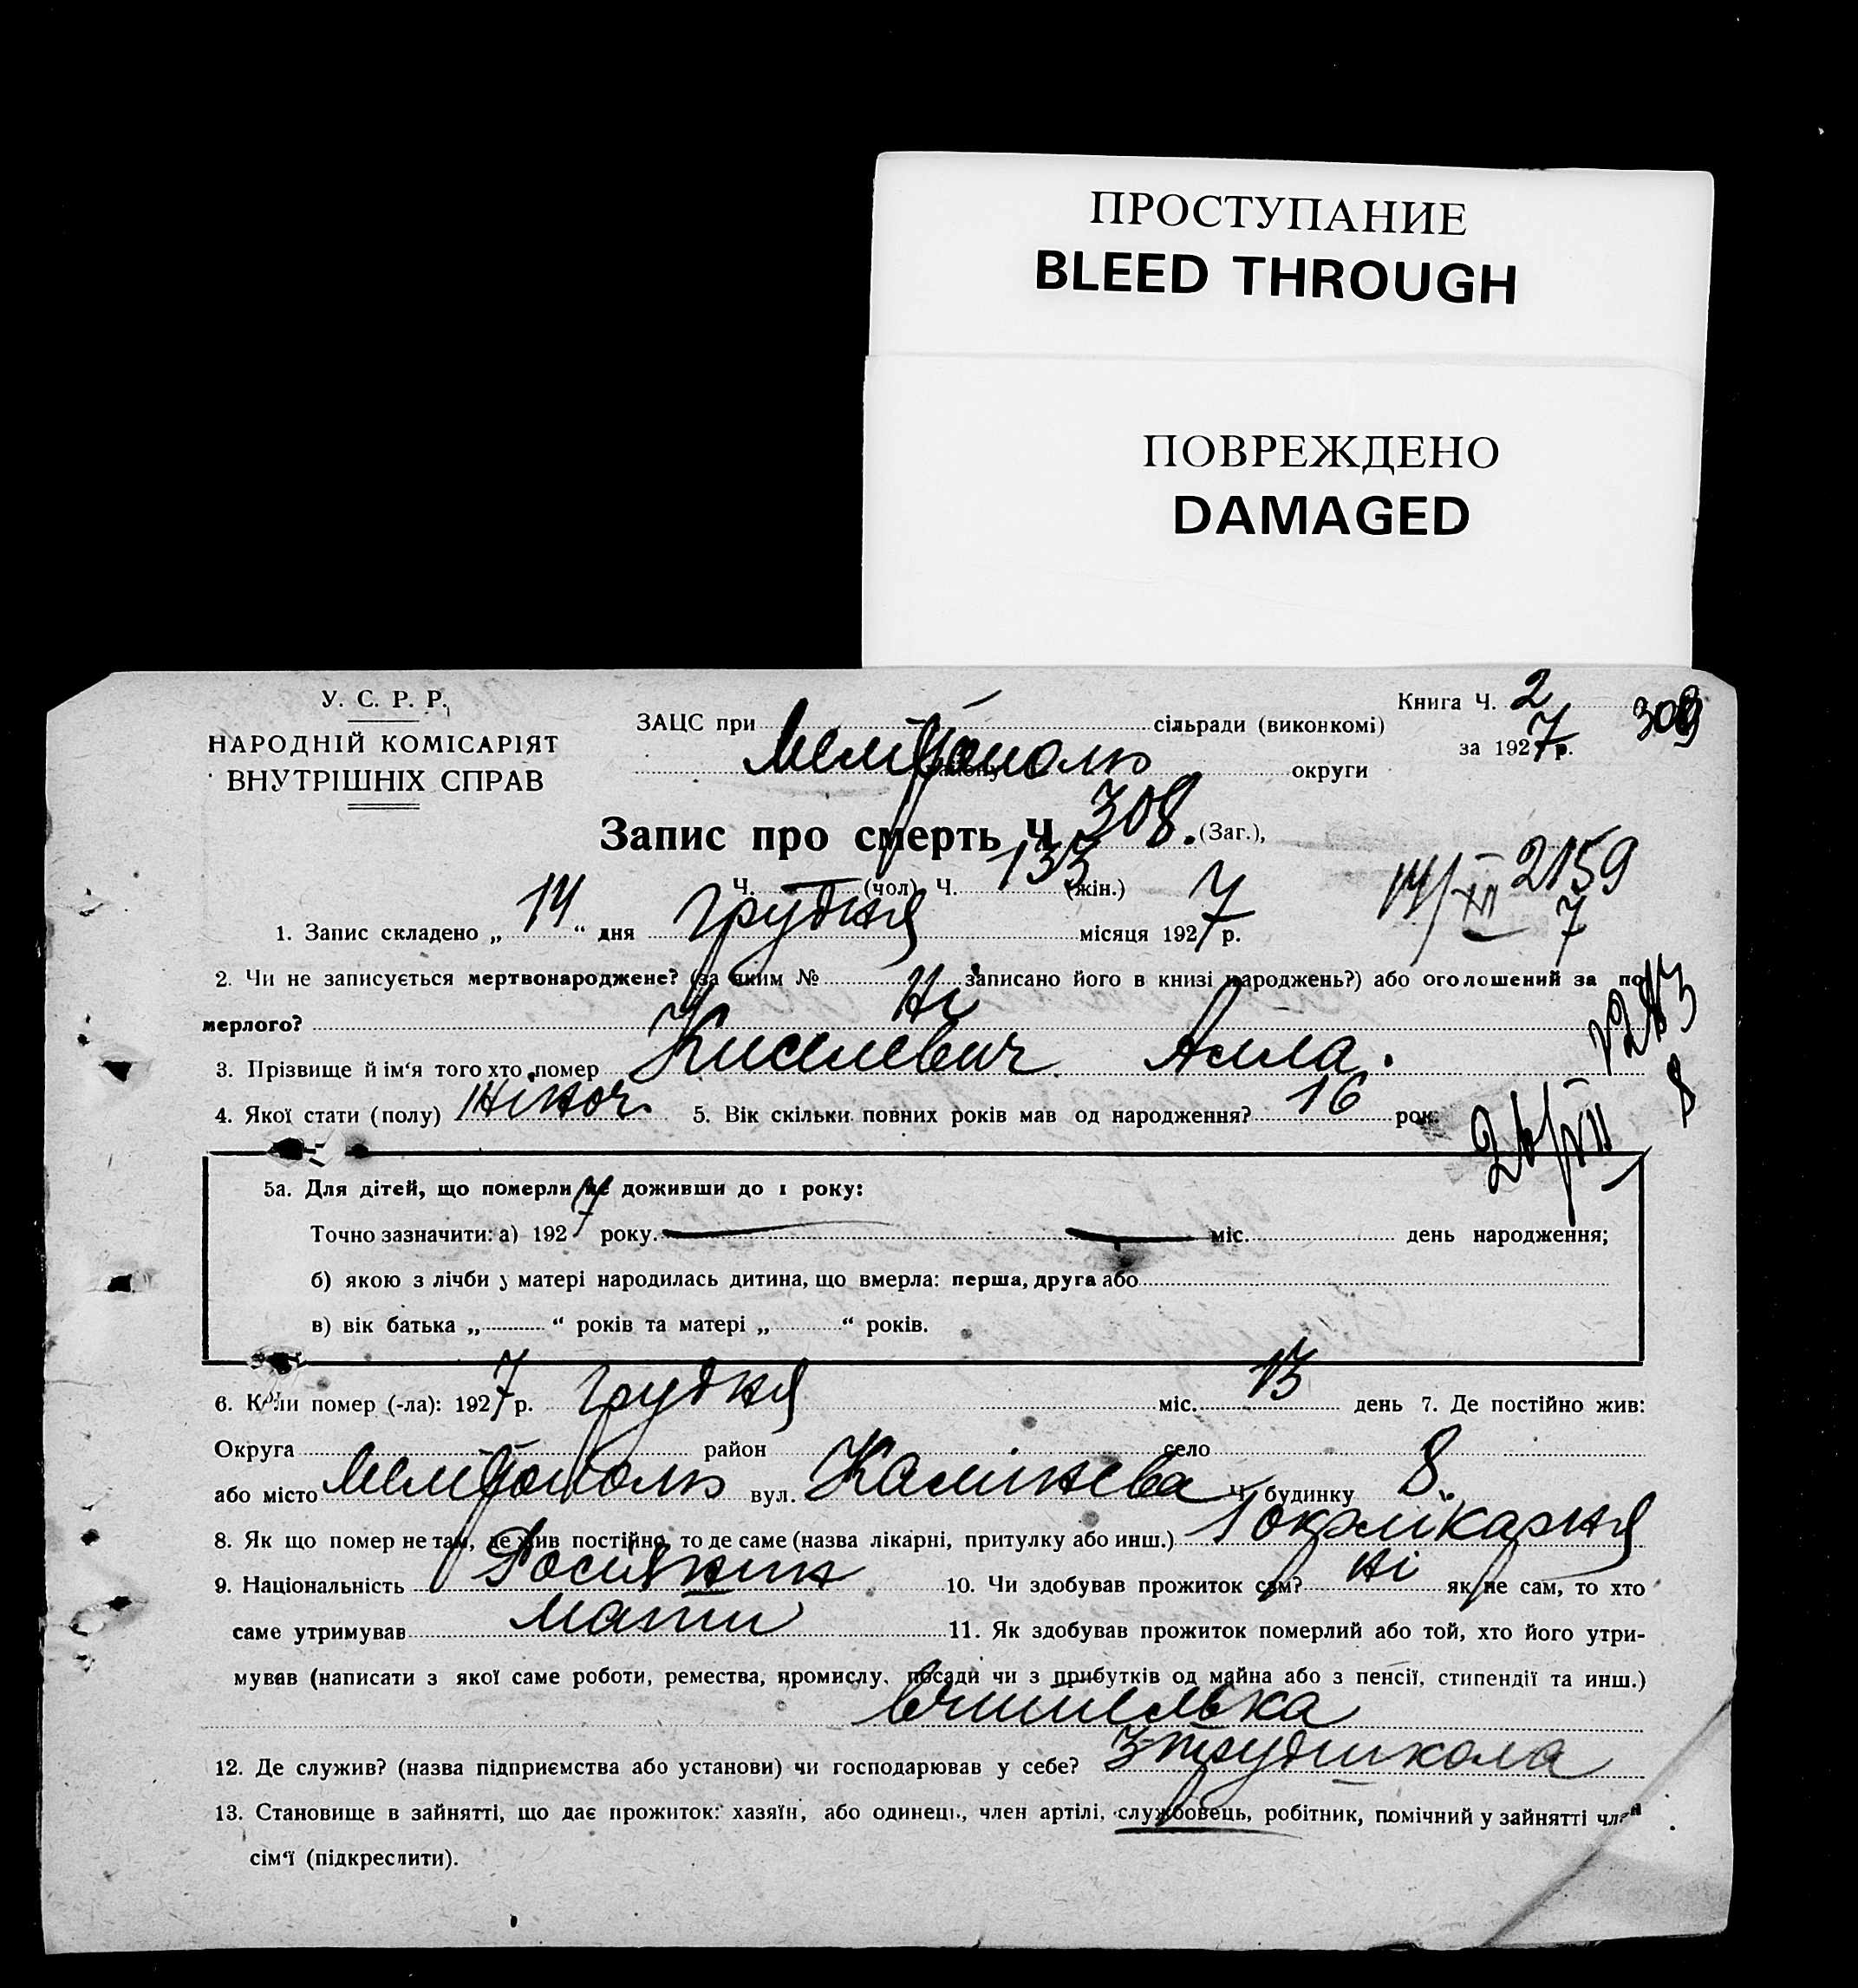 ПРОСТУПАНИЕ
BLEED THROUGH
ПОВРЕЖДЕНО
DAMAGED
У. С. Р. Р.
НАРОДНІЙ КОМІСАРІЯТ
ВНУТРІШНІХ СПРАВ
ЗАЦС при сільради (виконкомі)
Мелітополь округи
Книга Ч. 2
за 1927 р.
309
Запис про смерть Ч. 308. (Заг.),
Ч. — (чол) Ч. 133 (жін.)
14/XII 2159
7
1. Запис складено „ 14 “ дня грудня місяця 1927 р.
2. Чи не записується мертвонароджене? (за яким № записано його в книзі народжень?) або оголошений за по
мерлого? Ні
3. Прізвище й ім‘я того хто помер Киселевич Алла.
4. Якої стати (полу) жіноч. 5. Вік скільки повних років мав од народження? 16 рок.
8
5а. Для дітей, що померли не доживши до 1 року:
Точно зазначити: а) 1927 року. міс. день народження;
б) якою з лічби у матері народилась дитина, що вмерла: перша, друга або
в) вік батька „ “ років та матері „ “ років.
6. Коли помер (-ла): 1927 р. грудня міс. 13 день 7. Де постійно жив:
Округа район село
або місто Мелітополь вул. Камінева Ч. будинку 8.
8. Як що помер не там, де жив постійно, то де саме (назва лікарні, притулку або инш.) 1 окрлікарня
9. Національність 10. Чи здобував прожиток сам? ні як не сам, то хто
саме утримував мати 11. Як здобував прожиток померлий або той, хто його утри-
мував (написати з якої саме роботи, ремества, промислу, посади чи з прибутків од майна або з пенсії, стипендії та инш.)
вчителька
12. Де служив? (назва підприємства або установи) чи господарював у себе? 3-трудшкола
13. Становище в зайнятті, що дає прожиток: хазяїн, або одинець, член артілі, службовець, робітник, помічний у зайнятті член
сім‘ї (підкреслити).